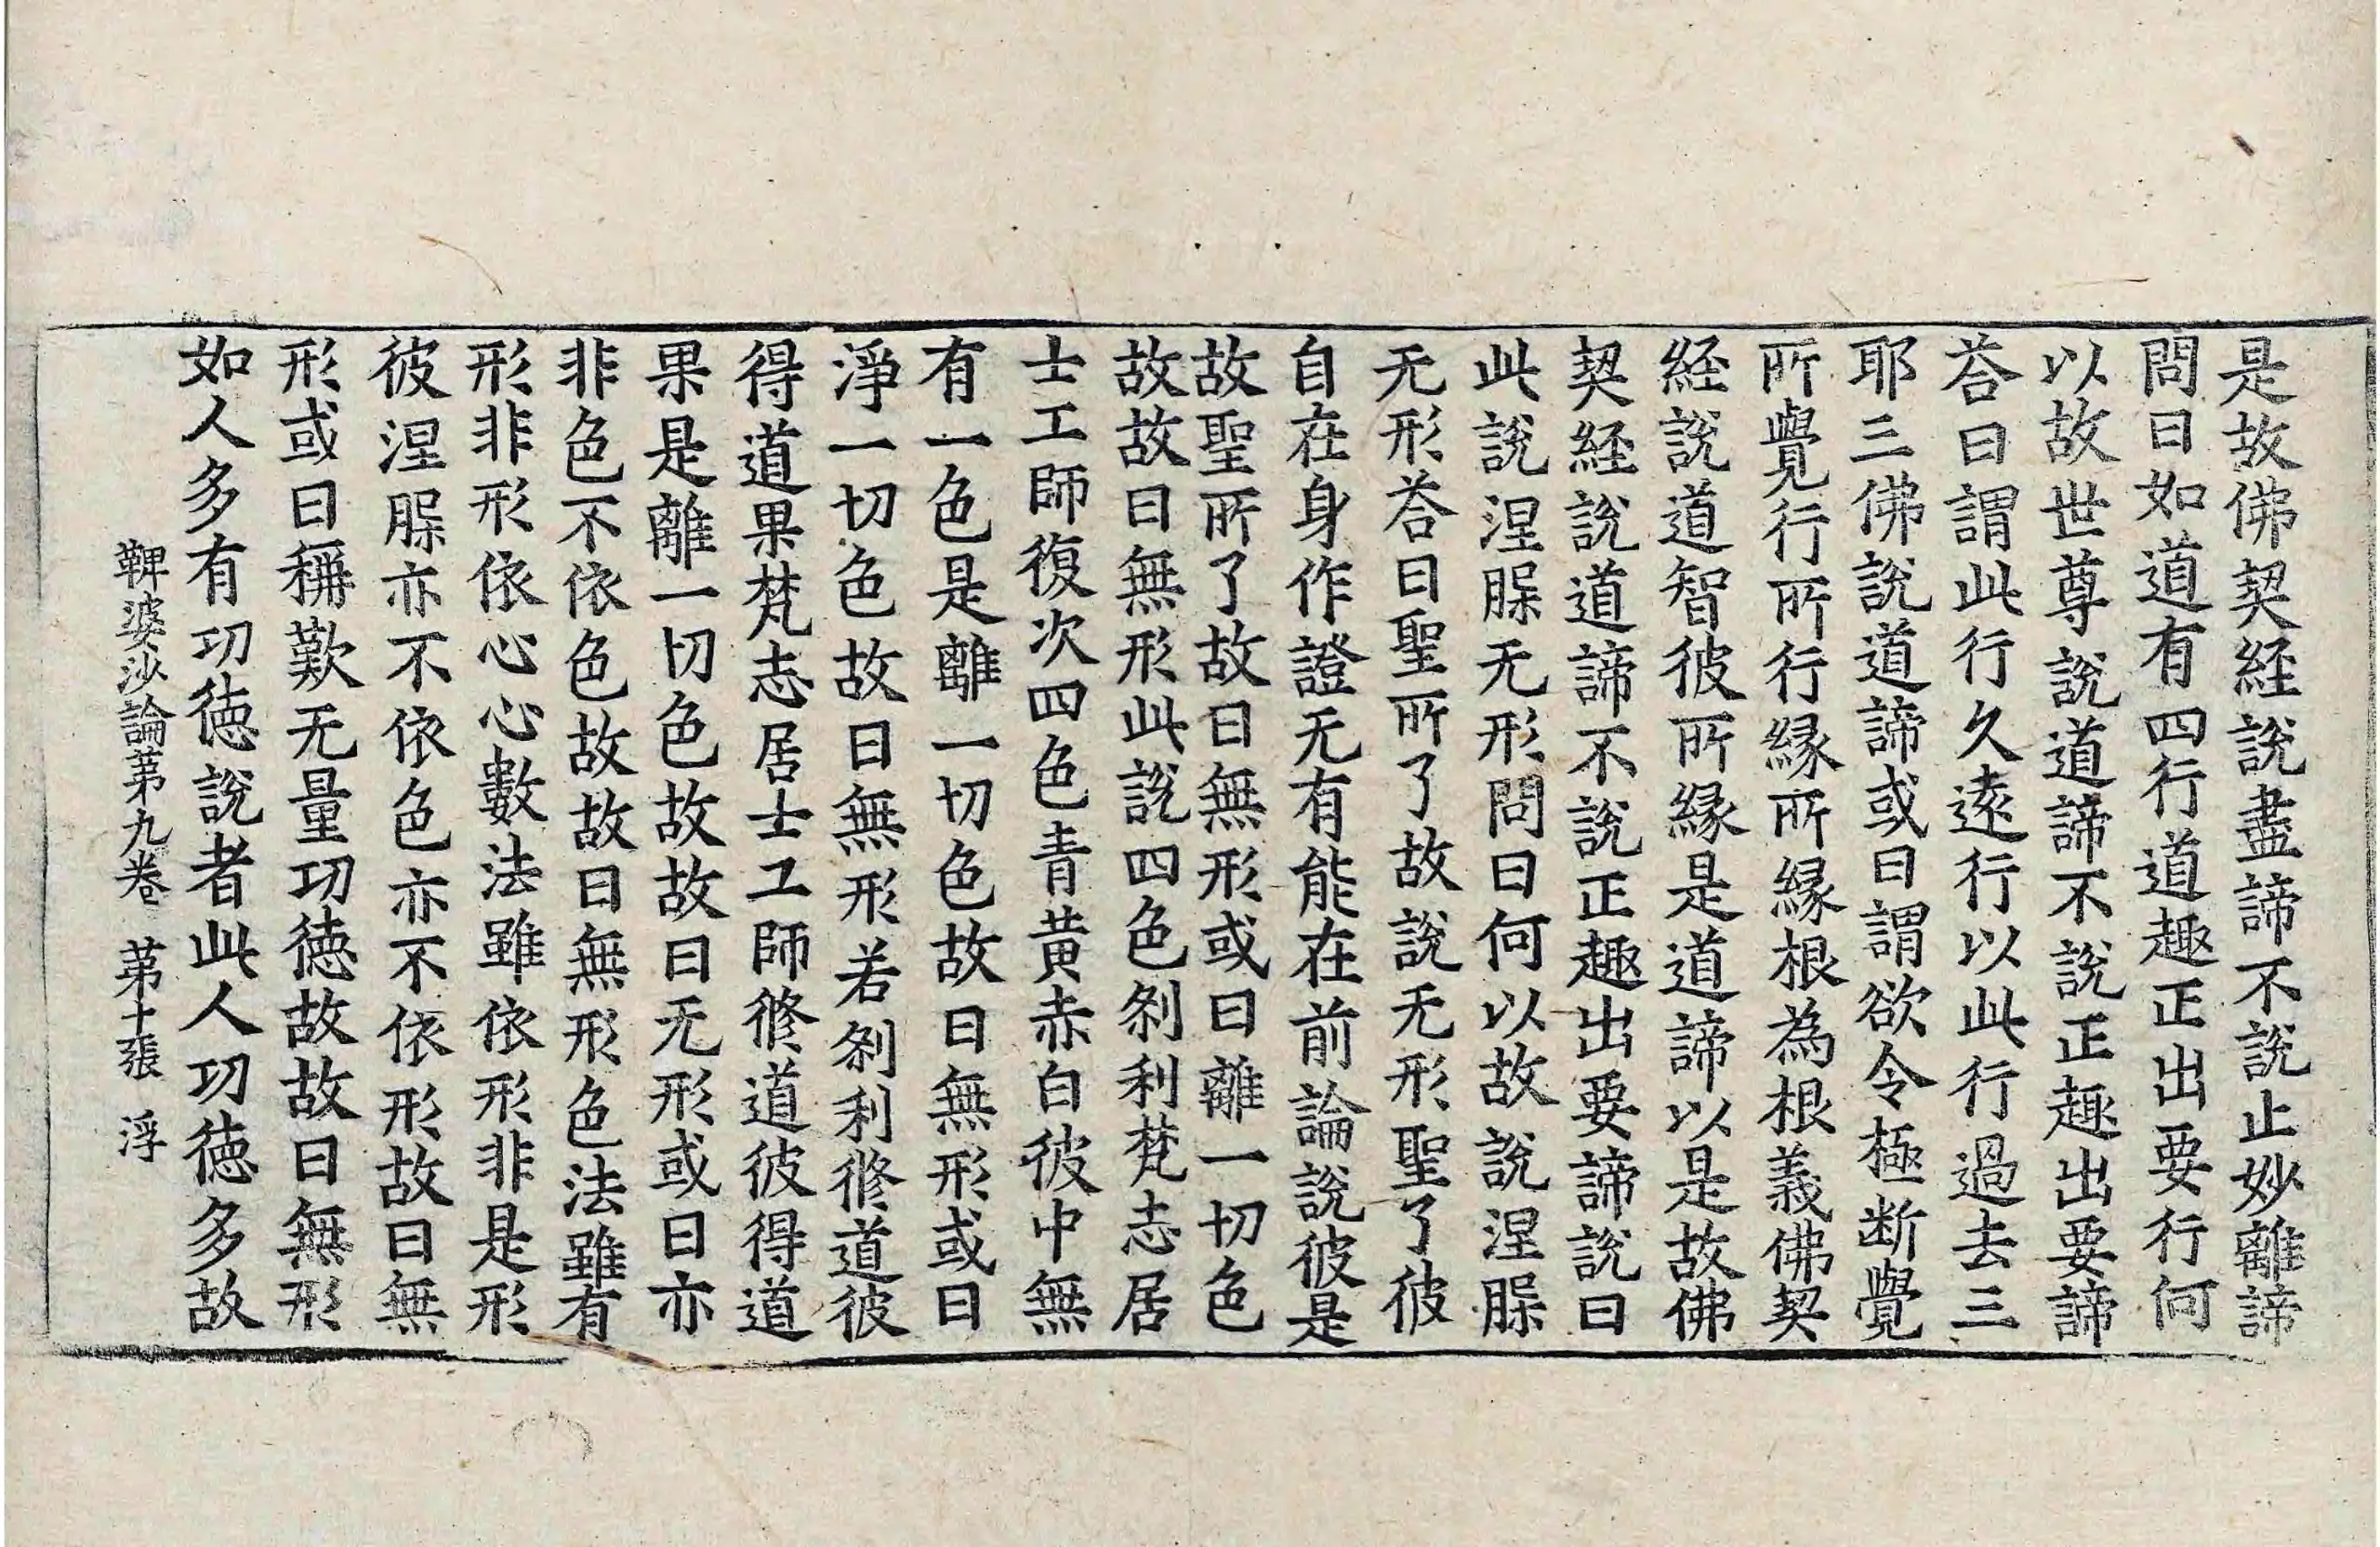 是故佛契経說盡諦不說止妙離諦
問曰如道有四行道趣正出要行何
以故世尊說道諦不說正趣出要諦
荅曰謂此行久遠行以此行過去三
耶三佛說道諦或曰謂欲令極断覺
所覺行所行縁所縁根為根義佛契
経說道智彼所縁是道諦以是故佛
契経說道諦不說正趣出要諦說曰
此說涅脲无形問曰何以故說涅脲
无形荅曰聖所了故說无形聖了彼
自在身作證无有能在前論說彼是
故聖所了故曰無形或曰離一切色
故故曰無形此說四色刹利梵志居
士工師復次四色青黄赤白彼中無
有一色是離一切色故曰無形或曰
淨一切色故曰無形若刹利脩道彼
得道果梵志居士工師脩道彼得道
果是離一切色故故曰无形或曰亦
非色不依色故故曰無形色法雖有
形非形依心心數法雖依形非是形
彼涅脲亦不依色亦不依形故曰無
形或曰稱歎无量功德故故曰無形
如人多有功德說者此人功德多故
鞞婆沙論苐九卷　苐十張　浮